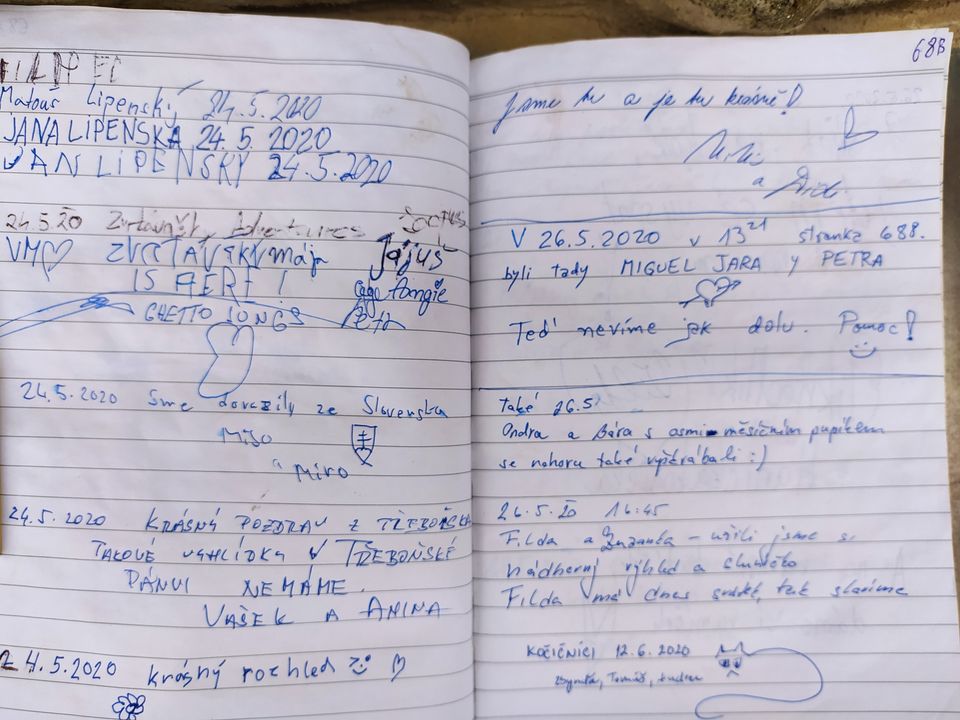 Matouš Lipenský 24.5.2020
JANA LIPENSKÁ 24.5.2020
JAN LIPENSKÝ 24.5.2020
24.5.20
VM
mája
Jájuš
IS AERE !
GHETTO
24.5.2020 Sme dorazily ze Slovenska
Mišo
a Miro
24.5.2020 KRÁSNÝ POZDRAV Z TŘEBOŇSKA
TAKOVÉ VYHLÍDKY V TŘEBOŇSKÉ
PÁNVI NEMÁME
VAŠEK A ANINA
24.5.2020 krásný rozhled
68B
Jsme tu a je tu krásně!
a
V 26.5.2020 v 13 21 stranka 68B.
byli tady MIGUEL JARA y PETRA
Teď nevíme jak dolu. Pomoc!
Také 26.5
Ondra a Bára s osmi-měsíčním pupíkem
se nahoru také vyštrábali :)
26.5.20 16:45
Filda a Zuzanka - užili jsme si
nádherný výhled a sluníčko
Filda má dnes svátek, tak slavíme
KOČIČNÍCI 12.6.2020
Tomáš,